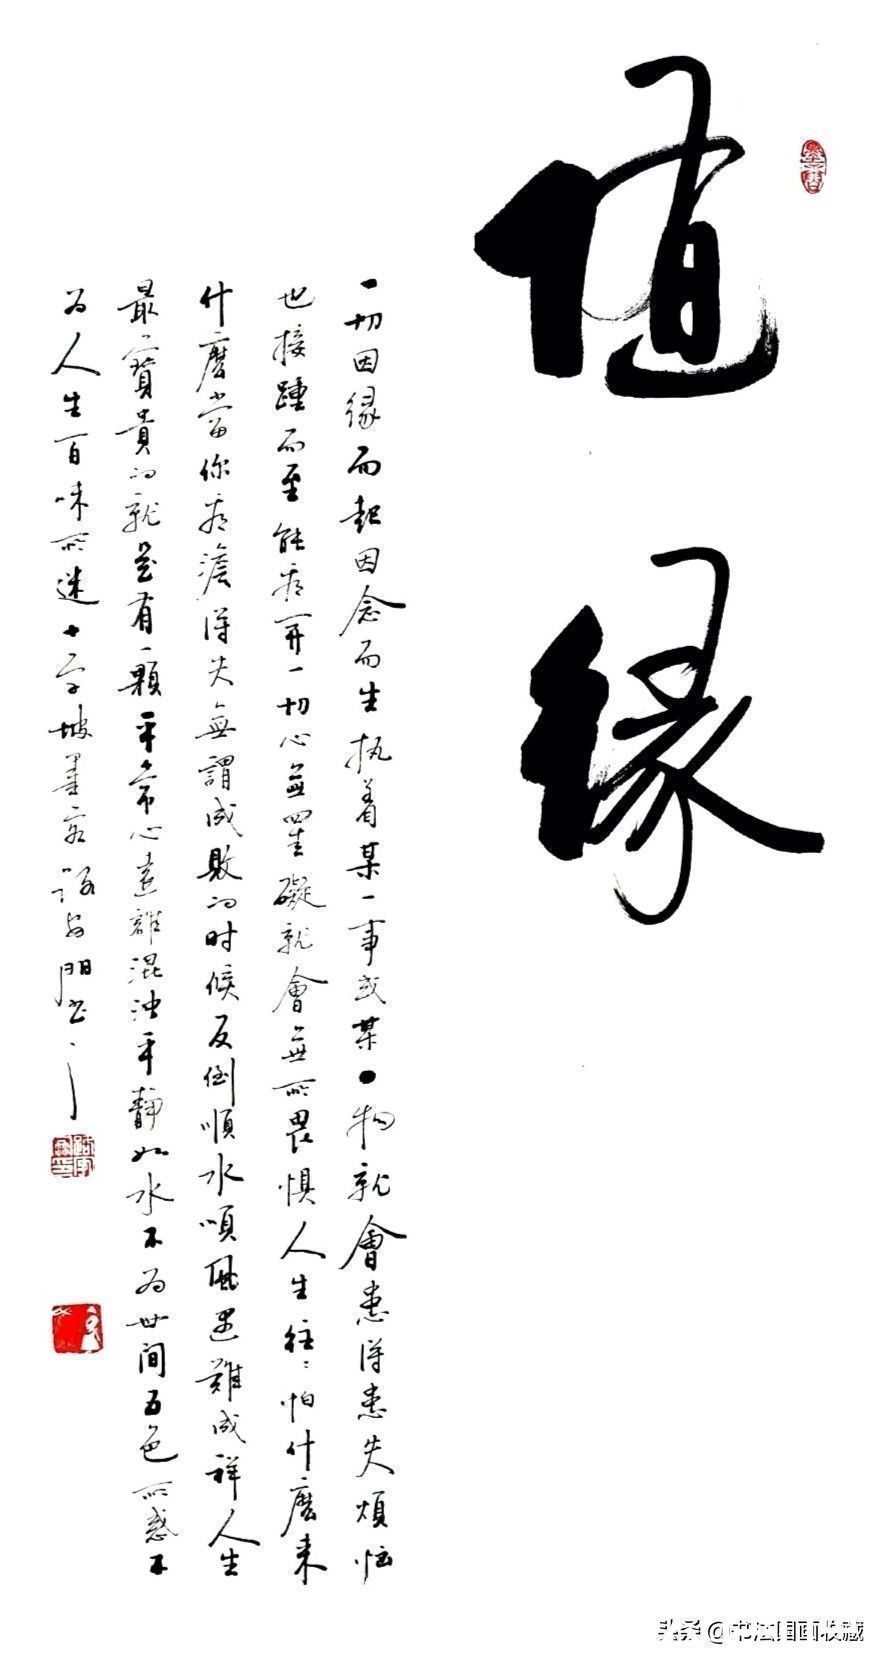 随缘
一切因缘而起因念而生执着某一事或某一物就會患得患失煩恼
也接踵而至能看開一切心無罣礙就會無所畏惧人生往往怕什麼来
什麼當你看澹得失無謂成敗的时候反倒順水順風遇難成祥人生
最寶貴的就是有一顆平常心遠離混浊平静如水不为世间五色所惑不
为人生百味所迷十字坡墨客門书
头条 @书法国画收藏